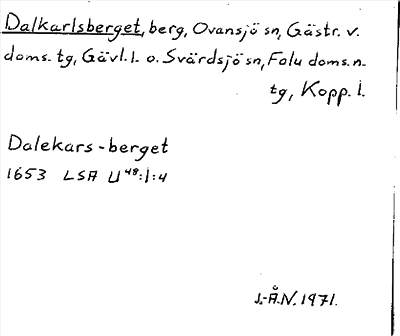 Dalkarlsberget, berg, Ovansjö sn, Gästr. v.
doms. tg, Gävl. l. o. Svärdsjö sn, Falu doms. n.
tg, Kopp. l.
Dalekars-berget
1653 LSA U 48:1:4
J.-Å.N. 1971.